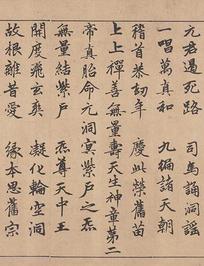 元君遏死路 司馬誦洞謠
一唱萬真和 九編諸天朝
稽首恭劫年 慶此榮舊苗
上上禪善無量壽天生神章第二
帝真胎命元洞冥紫戶之炁
無量結紫戶 炁尊天中王
開度飛玄爽 凝化輪空洞
故根離昔愛 緣本思舊宗